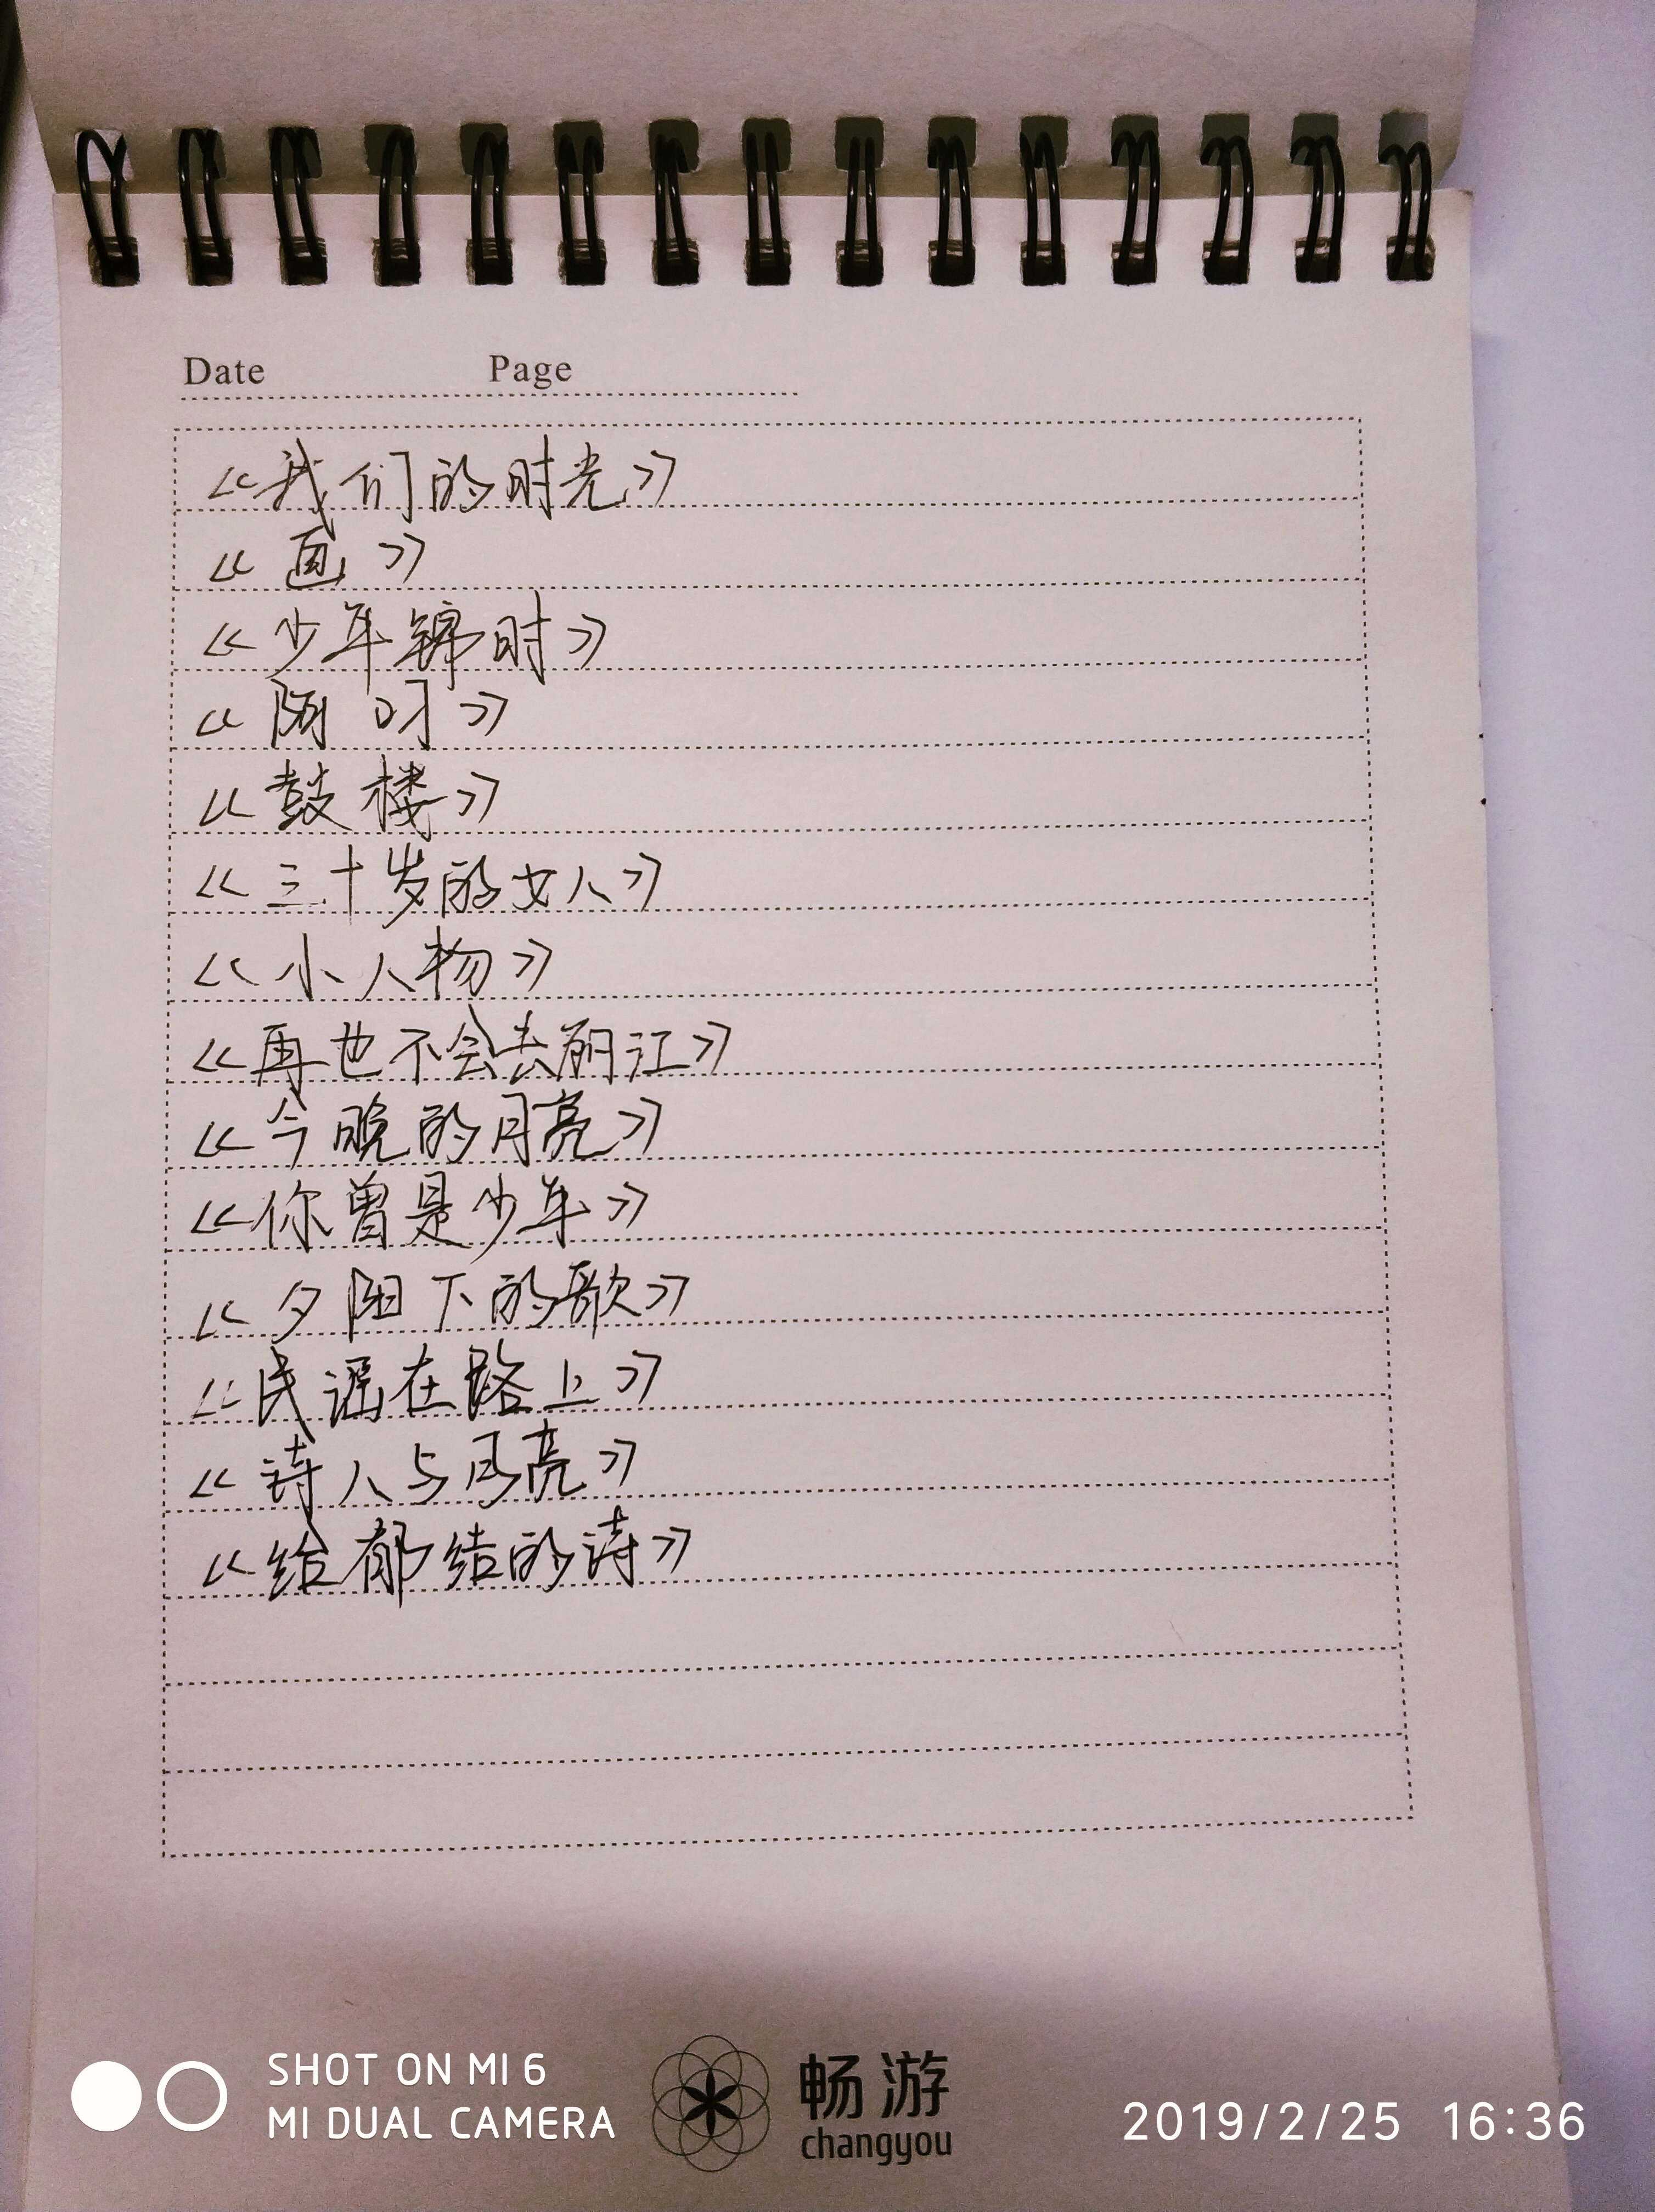 Date Page
《我们的时光》
《画》
《少年锦时》
《阿刁》
《鼓楼》
《三十岁的女人》
《小人物》
《再也不会去丽江》
《今晚的月亮》
《你曾是少年》
《夕阳下的歌》
《民谣在路上》
《诗人与月亮》
《给郁结的诗》
SHOT ON MI 6
MI DUAL CAMERA
畅游
changyou
2019/2/25 16:36